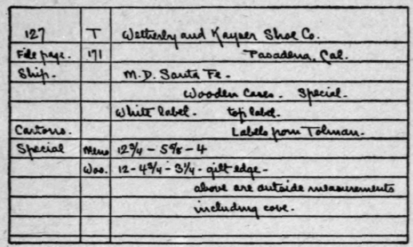 127 T Wetherby and Kayser Shoe Co.
File page. 171 Pasadena, Cal.
Ship. M.D. Santa Fe.
Wooden Cases. Special.
White label. top label.
Cartons. Labels from Tolman.
Special Mens 12 3/4 - 5 5/8 - 4
Wos. 12 - 4 3/4 - 3 3/4 - gilt edge.
above are outside measurements
including cove.